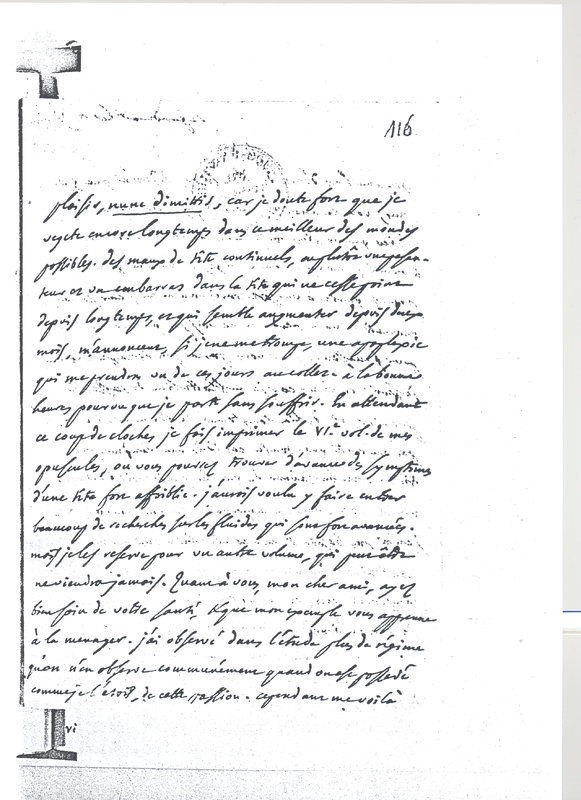 116
plaisir, nunc dimittis, car je doute fort que je
vegete encore longtemps dans ce meilleur des mondes
possibles. des maux de tête continuels, ou plutôt une pesan-
teur et un embarras dans la tête qui ne cesse point
depuis longtemps, et qui semble augmenter depuis deux
mois, m'annoncent, si je ne me trompe, une apoplexie
qui me prendra un de ces jours au collet. à la bonne
heure, pourvu que je parte sans souffrir. En attendant
ce coup de cloche, je fais imprimer le VIe. vol. de mes
opuscules, où vous pourrez trouver d'avance des symptomes
d'une tête fort affoiblie. j'aurois voulu y faire entrer
beaucoup de recherches sur les fluides qui sont fort avancées.
mais je les reserve pour un autre volume, qui peut être
ne viendra jamais. Quant à vous, mon cher ami, ayez
bien soin de votre santé, & que mon exemple vous apprenne
à la menager. j'ai observé dans l'étude plus de régime
qu'on n'en observe communément quand on est possedé
comme je l'étois, de cette passion. cependant me voilà
vi